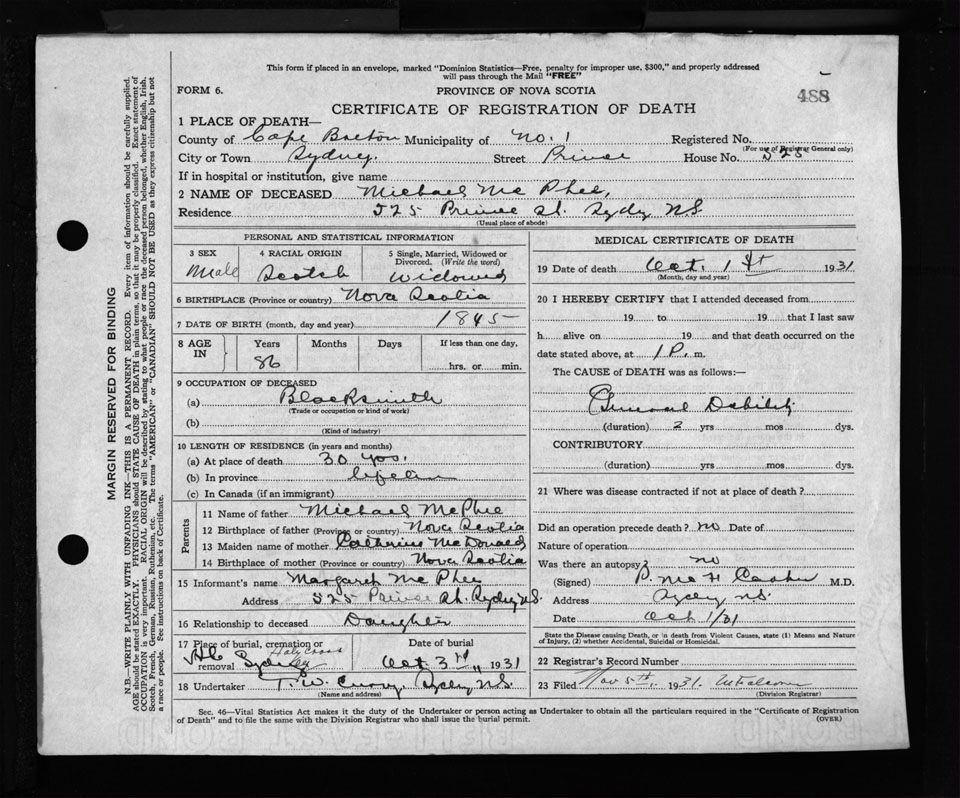 This form if placed in an envelope, marked "Dominion Statistics—Free, penalty for improper use, $300," and properly addressed
will pass through the Mail "FREE"
FORM 6.
PROVINCE OF NOVA SCOTIA
488
CERTIFICATE OF REGISTRATION OF DEATH
1 PLACE OF DEATH—
County of Cape Breton Municipality of No. 1 Registered No.
(For use of Registrar General only)
City or Town Sydney. Street Prince House No. 525
If in hospital or institution, give name
2 NAME OF DECEASED Michael Mc Phee,
Residence 525 Prince St. Sydney NS
(Usual place of abode)
PERSONAL AND STATISTICAL INFORMATION
3 SEX 4 RACIAL ORIGIN 5 Single, Married, Widowed or Divorced. (Write the word)
Male Scotch Widowed
6 BIRTHPLACE (Province or country) Nova Scotia
7 DATE OF BIRTH (month, day and year) 1845
8 AGE IN Years Months Days If less than one day,
86 hrs. or min.
9 OCCUPATION OF DECEASED
(a) Blacksmith
(Trade or occupation or kind of work)
(b)
(Kind of industry)
10 LENGTH OF RESIDENCE (in years and months)
(a) At place of death 30 yrs.
(b) In province
(c) In Canada (if an immigrant)
Parents
11 Name of father Michael McPhee
12 Birthplace of father (Province or country) Nova Scotia
13 Maiden name of mother Catherine McDonald
14 Birthplace of mother (Province or country) Nova Scotia
15 Informant's name Margaret Mc Phee
Address 525 Prince St. Sydney NS.
16 Relationship to deceased Daughter
17 Place of burial, cremation or removal Date of burial
Holy Cross
Sydney Oct 3rd 1931
18 Undertaker T. W. Curry, Sydney N.S.
(Name and address)
MEDICAL CERTIFICATE OF DEATH
19 Date of death Oct. 1st 1931
(Month, day and year)
20 I HEREBY CERTIFY that I attended deceased from
19 to 19 that I last saw
h alive on 19 and that death occurred on the
date stated above, at 1 P. m.
The CAUSE of DEATH was as follows:—
General Debility
(duration) 2 yrs mos dys.
CONTRIBUTORY
(duration) yrs mos dys.
21 Where was disease contracted if not at place of death?
Did an operation precede death? no Date of
Nature of operation
Was there an autopsy? no
(Signed) M.D.
Address Sydney NS.
Date Oct 1/31
State the Disease causing Death, or in death from Violent Causes, state (1) Means and Nature
of Injury, (2) whether Accidental, Suicidal or Homicidal.
22 Registrar's Record Number
23 Filed Nov 5th, 1931.
(Division Registrar)
Sec. 46—Vital Statistics Act makes it the duty of the Undertaker or person acting as Undertaker to obtain all the particulars required in the "Certificate of Registration
of Death" and to file the same with the Division Registrar who shall issue the burial permit.
(OVER)
MARGIN RESERVED FOR BINDING
N.B.—WRITE PLAINLY WITH UNFADING INK—THIS IS A PERMANENT RECORD. Every item of information should be carefully supplied.
AGE should be stated EXACTLY. PHYSICIANS should STATE CAUSE OF DEATH in plain terms, so that it may be properly classified. Exact statement of
OCCUPATION is very important. RACIAL ORIGIN will be described by stating to what people or race the deceased person belonged, whether English, Irish,
Scotch, French, German, Russian, Ruthenian, etc. The terms "AMERICAN" or "CANADIAN" SHOULD NOT BE USED as they express citizenship but not
a race or people. See instructions on back of Certificate.